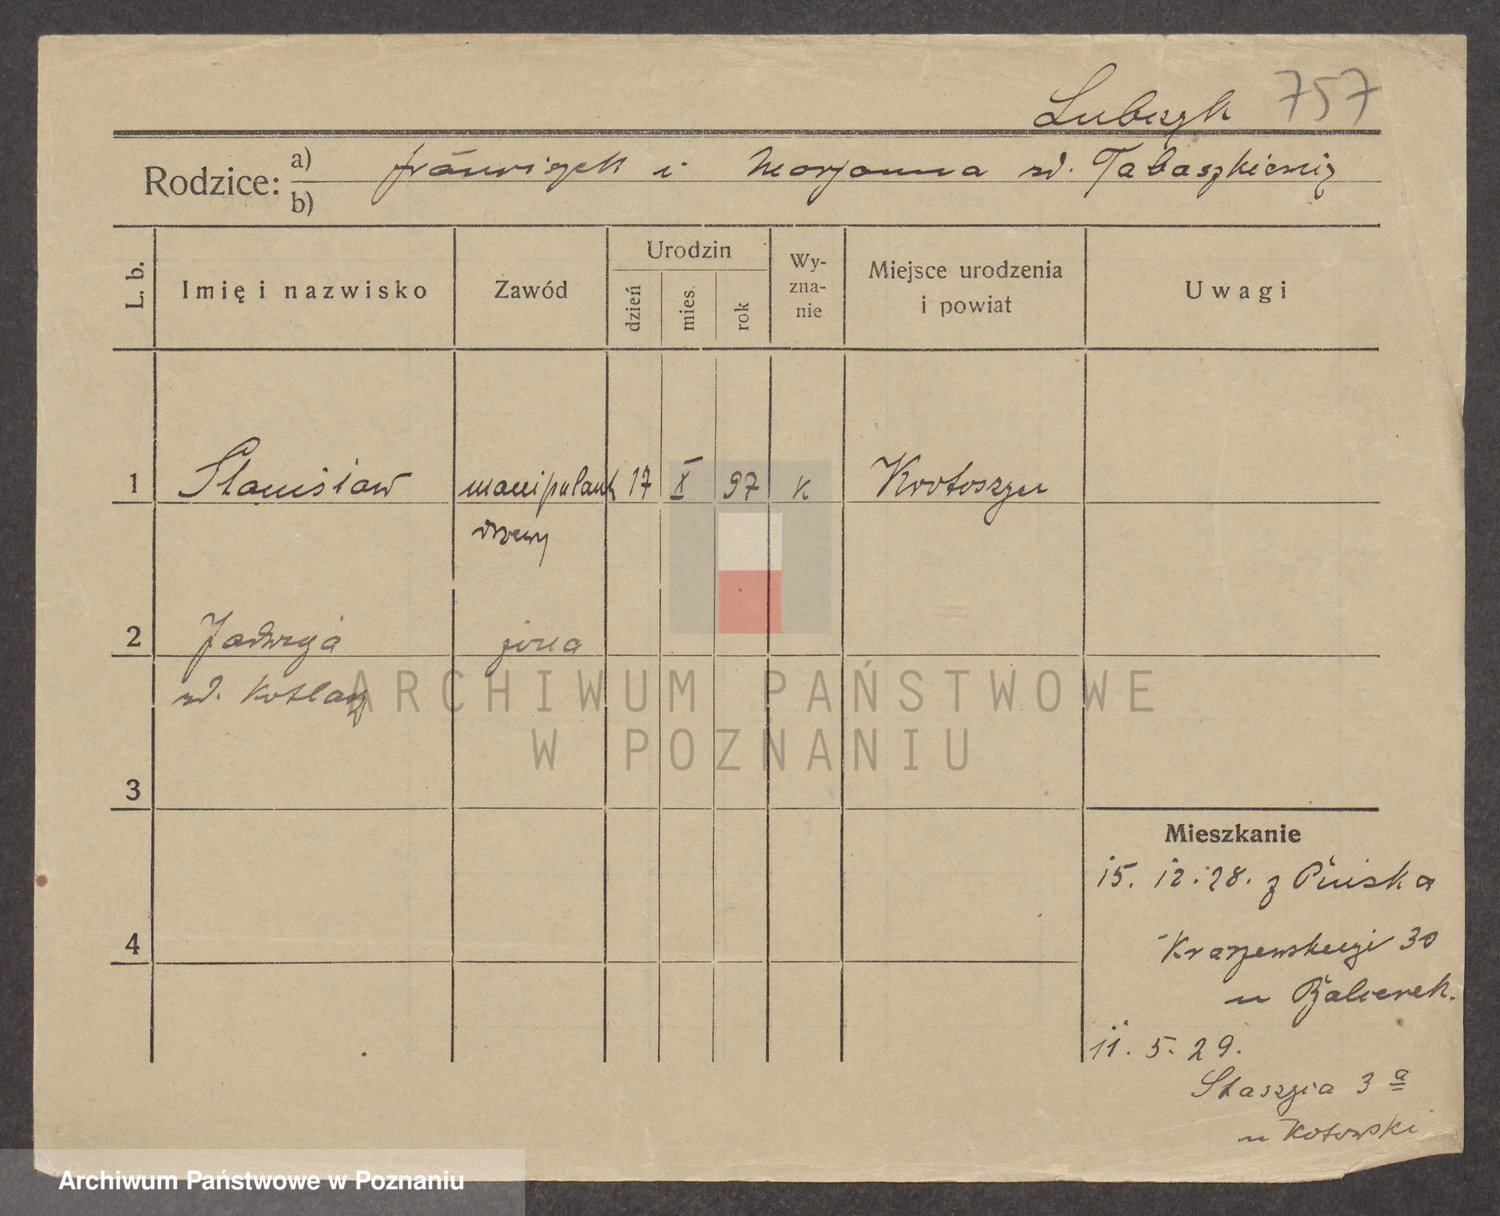 Lubczyk 757
Rodzice: a) Franciszek i Marjanna zd. Tabaszkiewicz
b)
L. b. Imię i nazwisko Zawód Urodzin dzień mies. rok Wyznanie Miejsce urodzenia i powiat Uwagi
1 Stanisław manipulant 17 X 97 k Krotoszyn
drzewny
2 Jadwiga żona
zd. Kotlarz
ARCHIWUM PAŃSTWOWE
W POZNANIU
3
Mieszkanie
15. 12. 28. z Pińska
4 Kraszewskiego 30
u
11. 5. 29.
Staszyca 3 a
u Kotowski
Archiwum Państwowe w Poznaniu